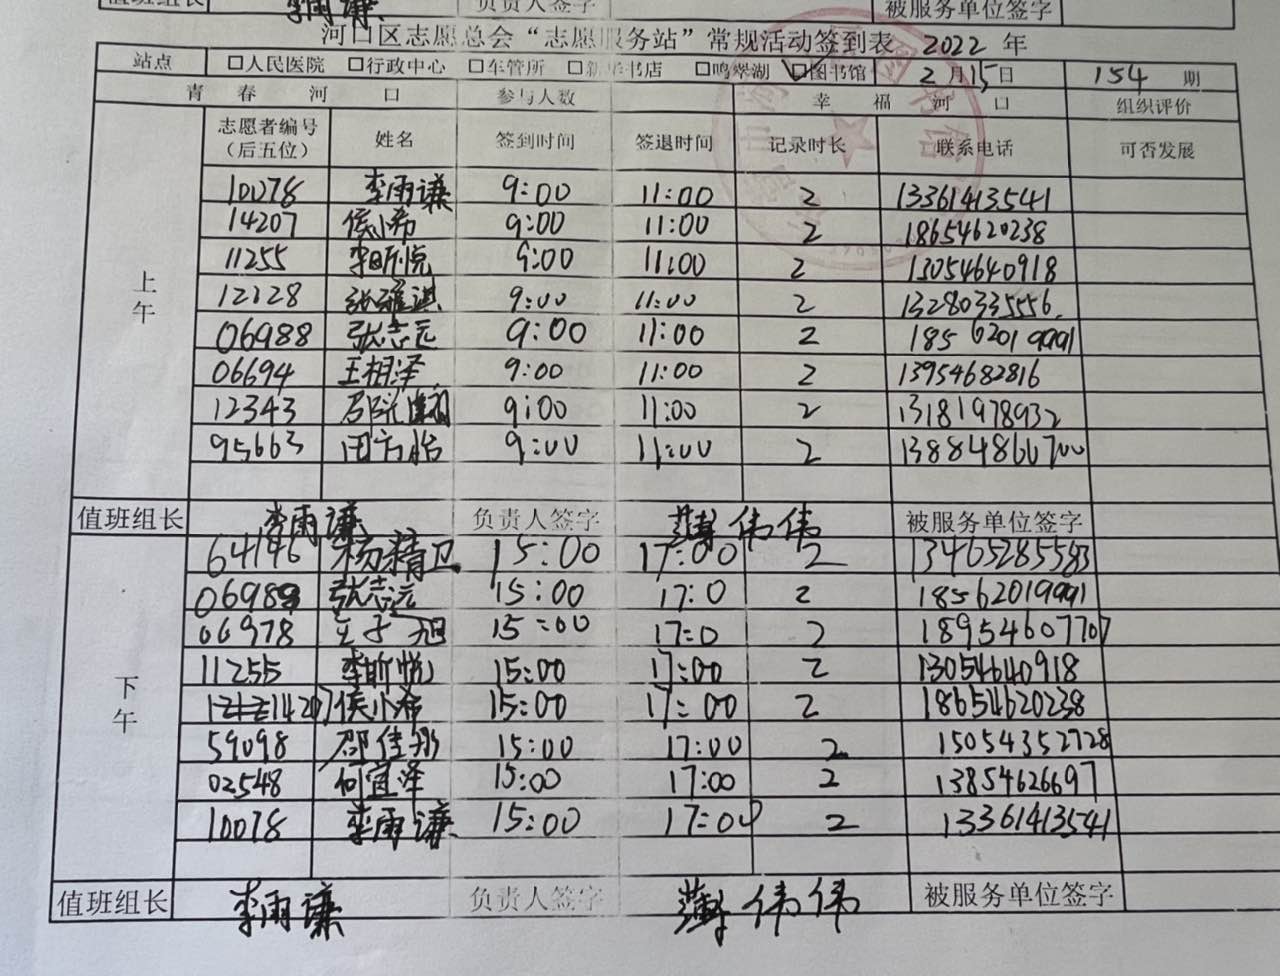 值班组长 李雨谦 负责人签字 被服务单位签字
河口区志愿总会“志愿服务站”常规活动签到表 2022 年
站点 □人民医院 □行政中心 □车管所 □新华书店 □鸣翠湖 ☑图书馆 2月15日 154 期
青春河口 参与人数 幸福河口 组织评价
志愿者编号（后五位） 姓名 签到时间 签退时间 记录时长 联系电话 可否发展
上午
10078 李雨谦 9:00 11:00 2 13361413541
14207 侯小希 9:00 11:00 2 18654620238
11255 李昕悦 9:00 11:00 2 13054640918
12128 张雅淇 9:00 11:00 2 13280335556.
06988 张志远 9:00 11:00 2 18562019991
06694 王相泽 9:00 11:00 2 13954682816
12343 9:00 11:00 2 13181978932
95663 田方怡 9:00 11:00 2 13884866700
值班组长 李雨谦 负责人签字 薄伟伟 被服务单位签字
下午
64146 杨精卫 15:00 17:00 2 13465285583
06988 张志远 15:00 17:0 2 18562019991
06978 王子旭 15:00 17:0 2 18954607707
11255 李昕悦 15:00 17:00 2 13054640918
14207 侯小希 15:00 17:00 2 18654620238
59098 邵佳彤 15:00 17:00 2 15054352728
02548 何宜泽 15:00 17:00 2 13854626697
10078 李雨谦 15:00 17:00 2 13361413541
值班组长 李雨谦 负责人签字 薄伟伟 被服务单位签字